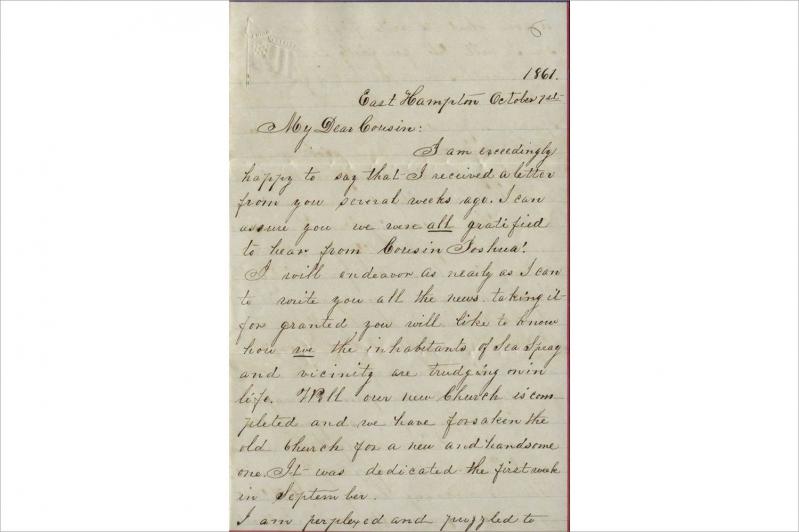 6
1861.
East Hampton October 1st
My Dear Cousin:
I am exceedingly
happy to say that I received a letter
from you several weeks ago. I can
assure you we were all gratified
to hear from Cousin Joshua!
I will endeavor as nearly as I can
to write you all the news taking it
for granted you will like to know
how we the inhabitants of Sea Spray
and vicinity are trudging on in
life. Well our new Church is com
pleted and we have forsaken the
old church for a new and handsome
one. It was dedicated the first week
in September.
I am perplexed and puzzled to